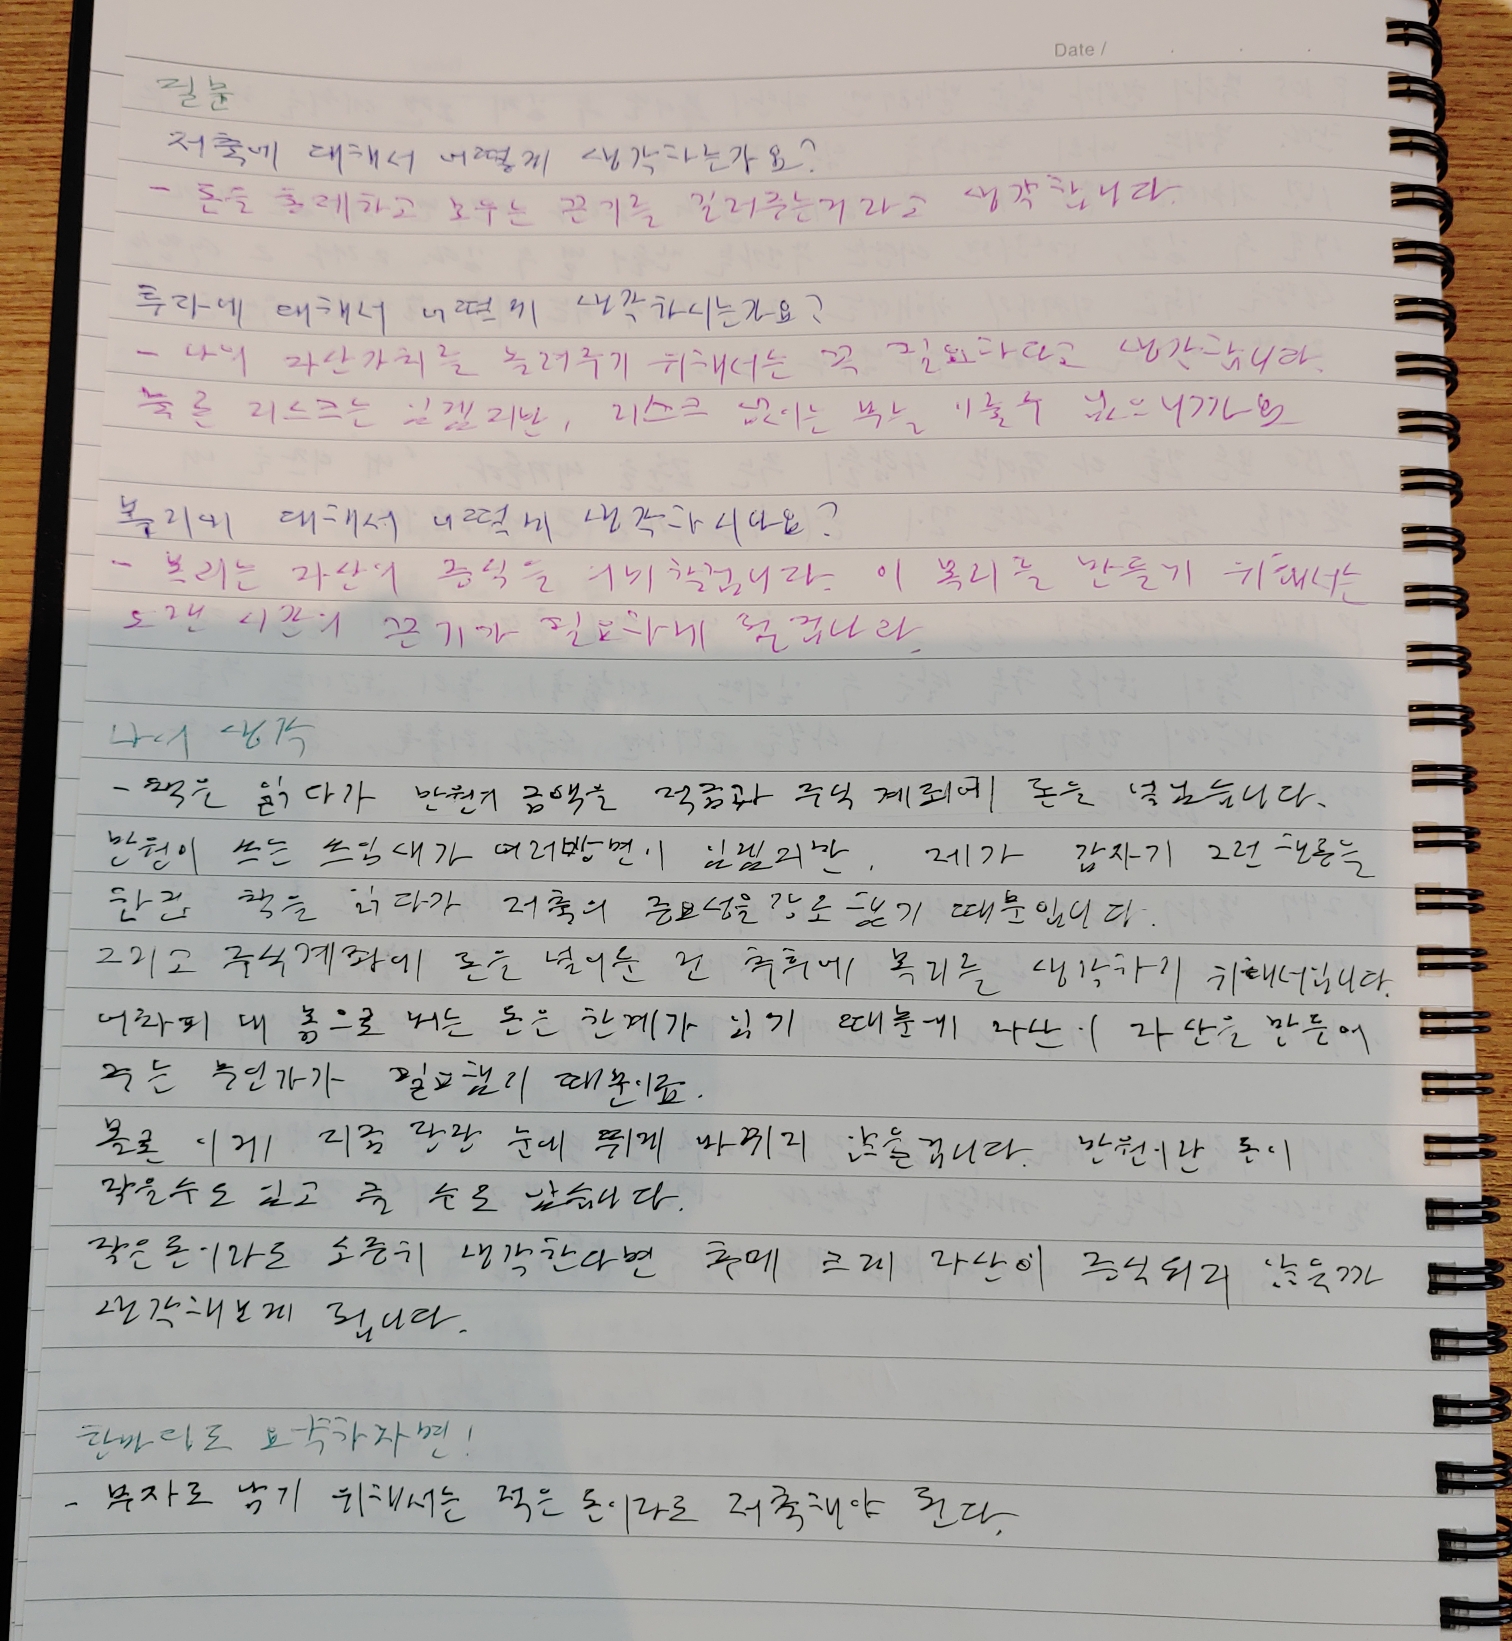 Date /
질문
저축에 대해서 어떻게 생각하는가요?
- 돈을 하고 모우는 끈기를 길러주는거라고 생각합니다.
투자에 대해서 어떻게 생각하시는가요?
- 나의 자산가치를 늘려주기 위해서는 꼭 필요하다고 생각합니다.
물론 리스크는 있겠지만, 리스크 없이는 부는 이룰수 없으니까요
복리에 대해서 어떻게 생각하시나요?
- 복리는 자산의 증식을 겁니다. 이 복리를 만들기 위해서는
오랜 시간의 끈기가 필요하게 될겁니다.
나의 생각
- 책은 읽다가 만원의 금액을 적금과 주식 계좌에 돈을 넣었습니다.
만원이 쓰는 쓰임새가 여러방면이 있겠지만, 제가 갑자기 그런 행동을
한건 책을 읽다가 저축의 중요성을 강조했기 때문입니다.
그리고 주식계좌에 돈을 넣어둔 건 추후에 복리를 생각하기 위해서입니다.
어차피 내 몸으로 버는 돈은 한계가 있기 때문에 자산이 자산을 만들어
주는 무언가가 필요했기 때문이죠.
물론 이게 지금 당장 눈에 띄게 바뀌지 않을겁니다. 만원이란 돈이
작을수도 있고 클 수도 있습니다.
작은돈이라도 소중히 생각한다면 추에 크게 자산이 증식되지 않을까
생각해보게 됩니다.
한마디로 요약하자면!
- 부자로 남기 위해서는 적은 돈이라도 저축해야 된다.